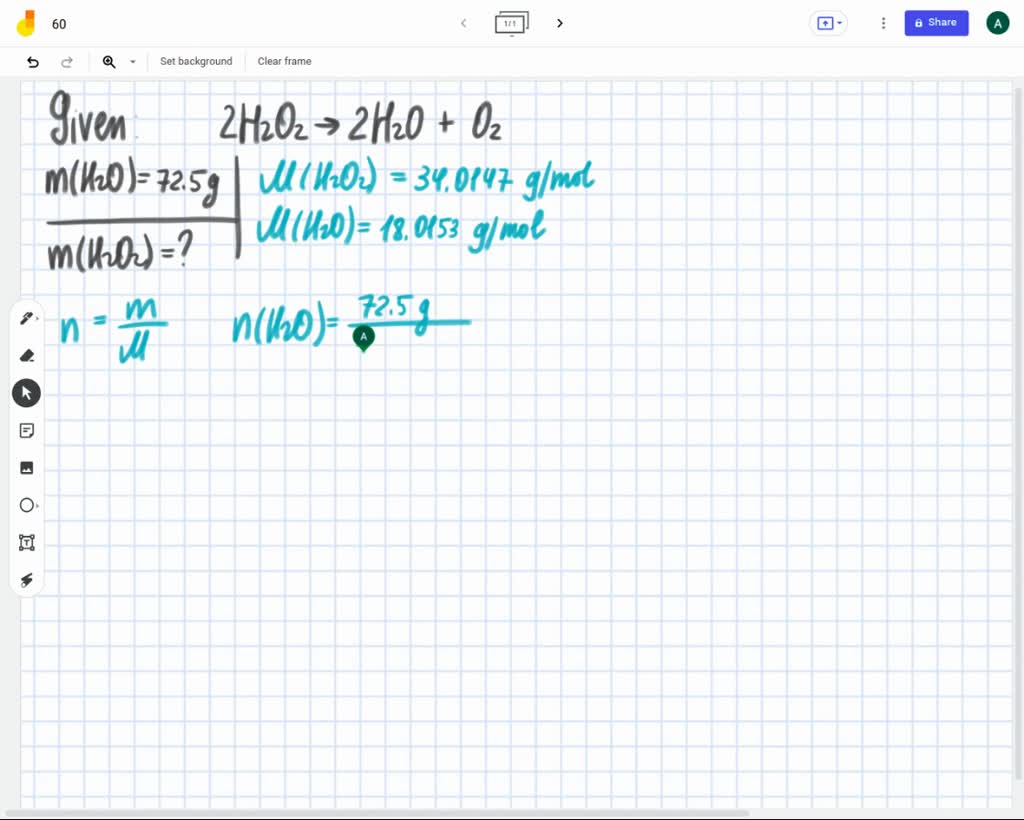 60
1/1
Share
A
Set background
Clear frame
Given: 2H₂O₂ → 2H₂O + O₂
m(H₂O) = 72.5g
M(H₂O₂) = 34.0147 g/mol
M(H₂O) = 18.0153 g/mol
m(H₂O₂) = ?
n = m/M
n(H₂O) = 72.5 g
A
T